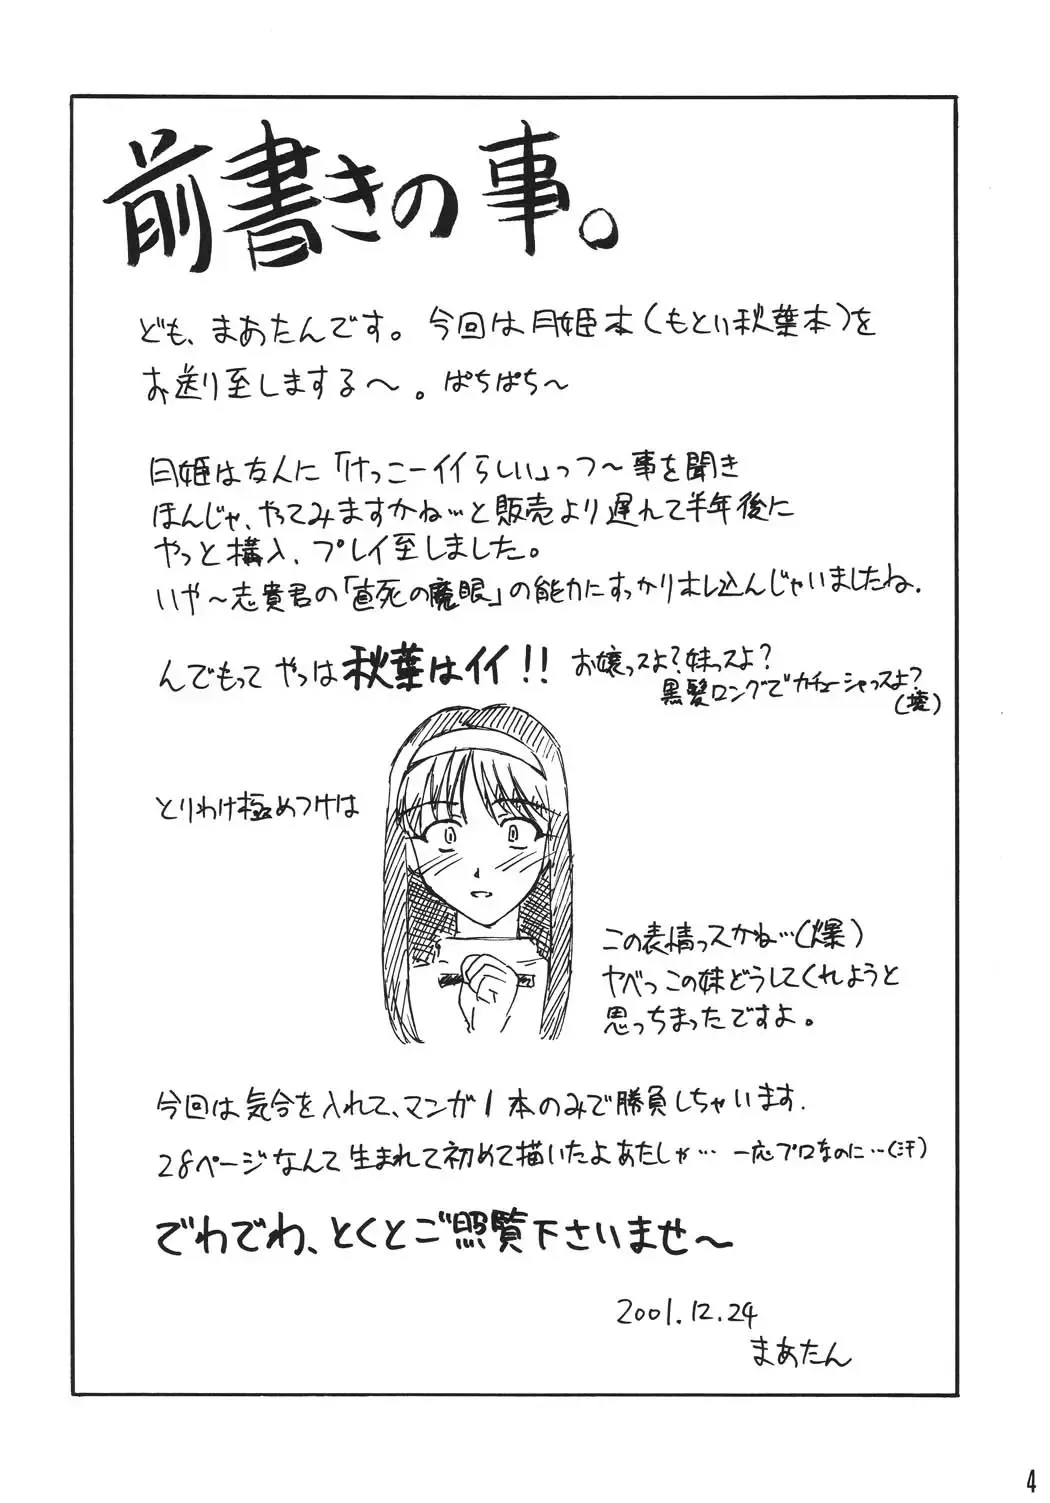 前書きの事。
ども、まあたんです。今回は月姫本(もとい秋葉本)を
お送り至しまする〜。ぱちぱち〜
月姫は友人に「けっこーイイらしい」っつ〜事を聞き
ほんじゃ、やってみますかね…と販売より遅れて半年後に
やっと構入、プレイ至しました。
いや〜志貴君の「直死の魔眼」の能力にすっかりホレ込んじゃいましたね.
んでもって やっは秋葉はイイ!! お嬢っスよ?妹っスよ?
黒髪ロングでカチューシャっスよ?
(壊)
とりわけ極めつけは
この表情っスかね…(爆)
ヤベっこの妹どうしてくれようと
思っちまったですよ。
今回は気合を入れて、マンガ1本のみで勝負しちゃいます.
28ページなんて生まれて初めて描いたよあたしゃ… 一応プロなのに…(汗)
でわでわ、とくとご照覧下さいませ〜
2001.12.24
まあたん
4